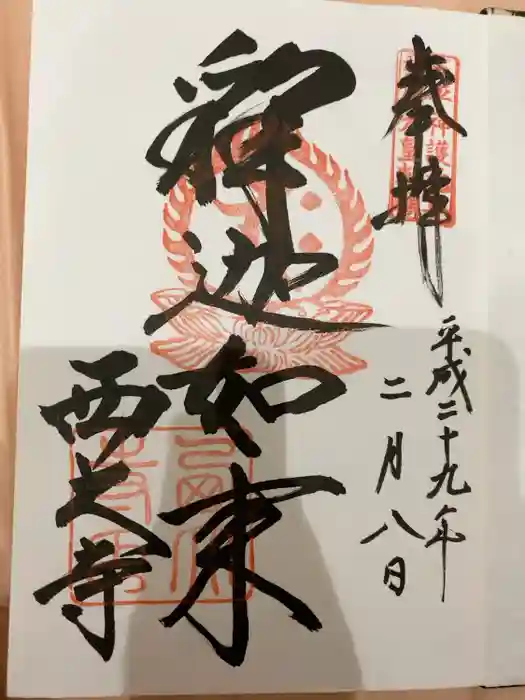 奉拝
平成二十九年
二月八日
釋迦如来
西大寺